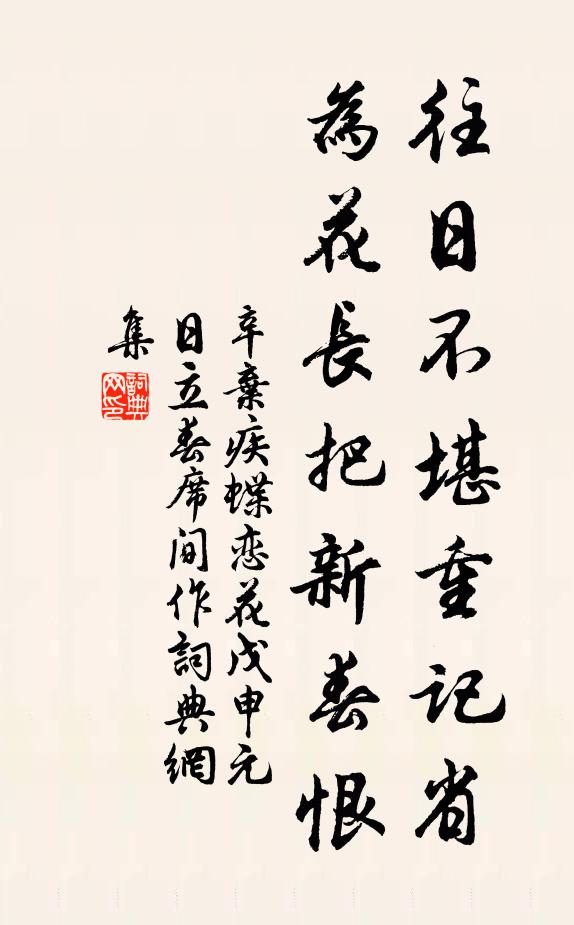 往日不堪重記省
為花長把新春恨
辛棄疾蝶恋花戊申元
日立春席间作詞典網
集
詞典
网印